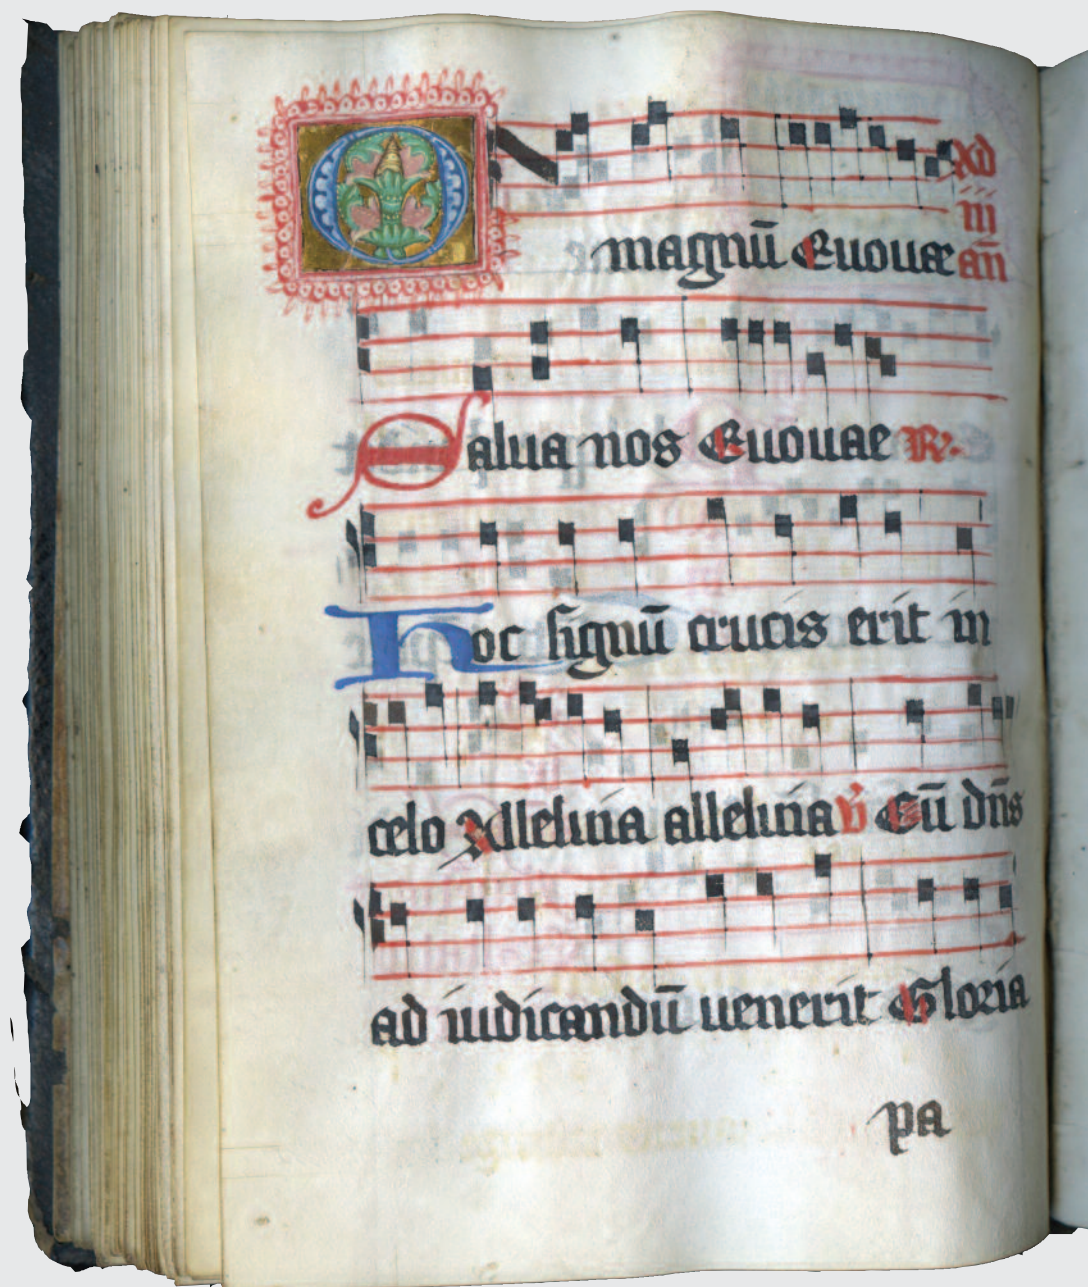 O magnū Euouæ Ad
iii
añ
Salua nos Euouae R.
hoc signū crucis erit in
celo Alleluia alleluia v Cū dn̄s
ad iudicandū uenerit Gloria
pa